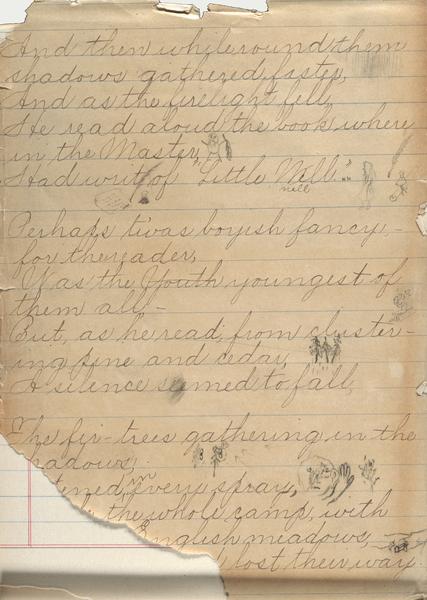 And then while round them
shadows gathered faster,
And as the firelight fell,
He read aloud the book where
in the Master,
Had writ of "Little Nell".
nell
Perhaps twas boyish fancy, -
for the reader,
Was the Youth youngest of
them all -
But, as he read, from cluster-
ing pine and cedar,
A silence seemed to fall,
The fir-trees gathering in the
hadows,
tened in every spray,
the whole camp, with
English meadows,
lost their way.